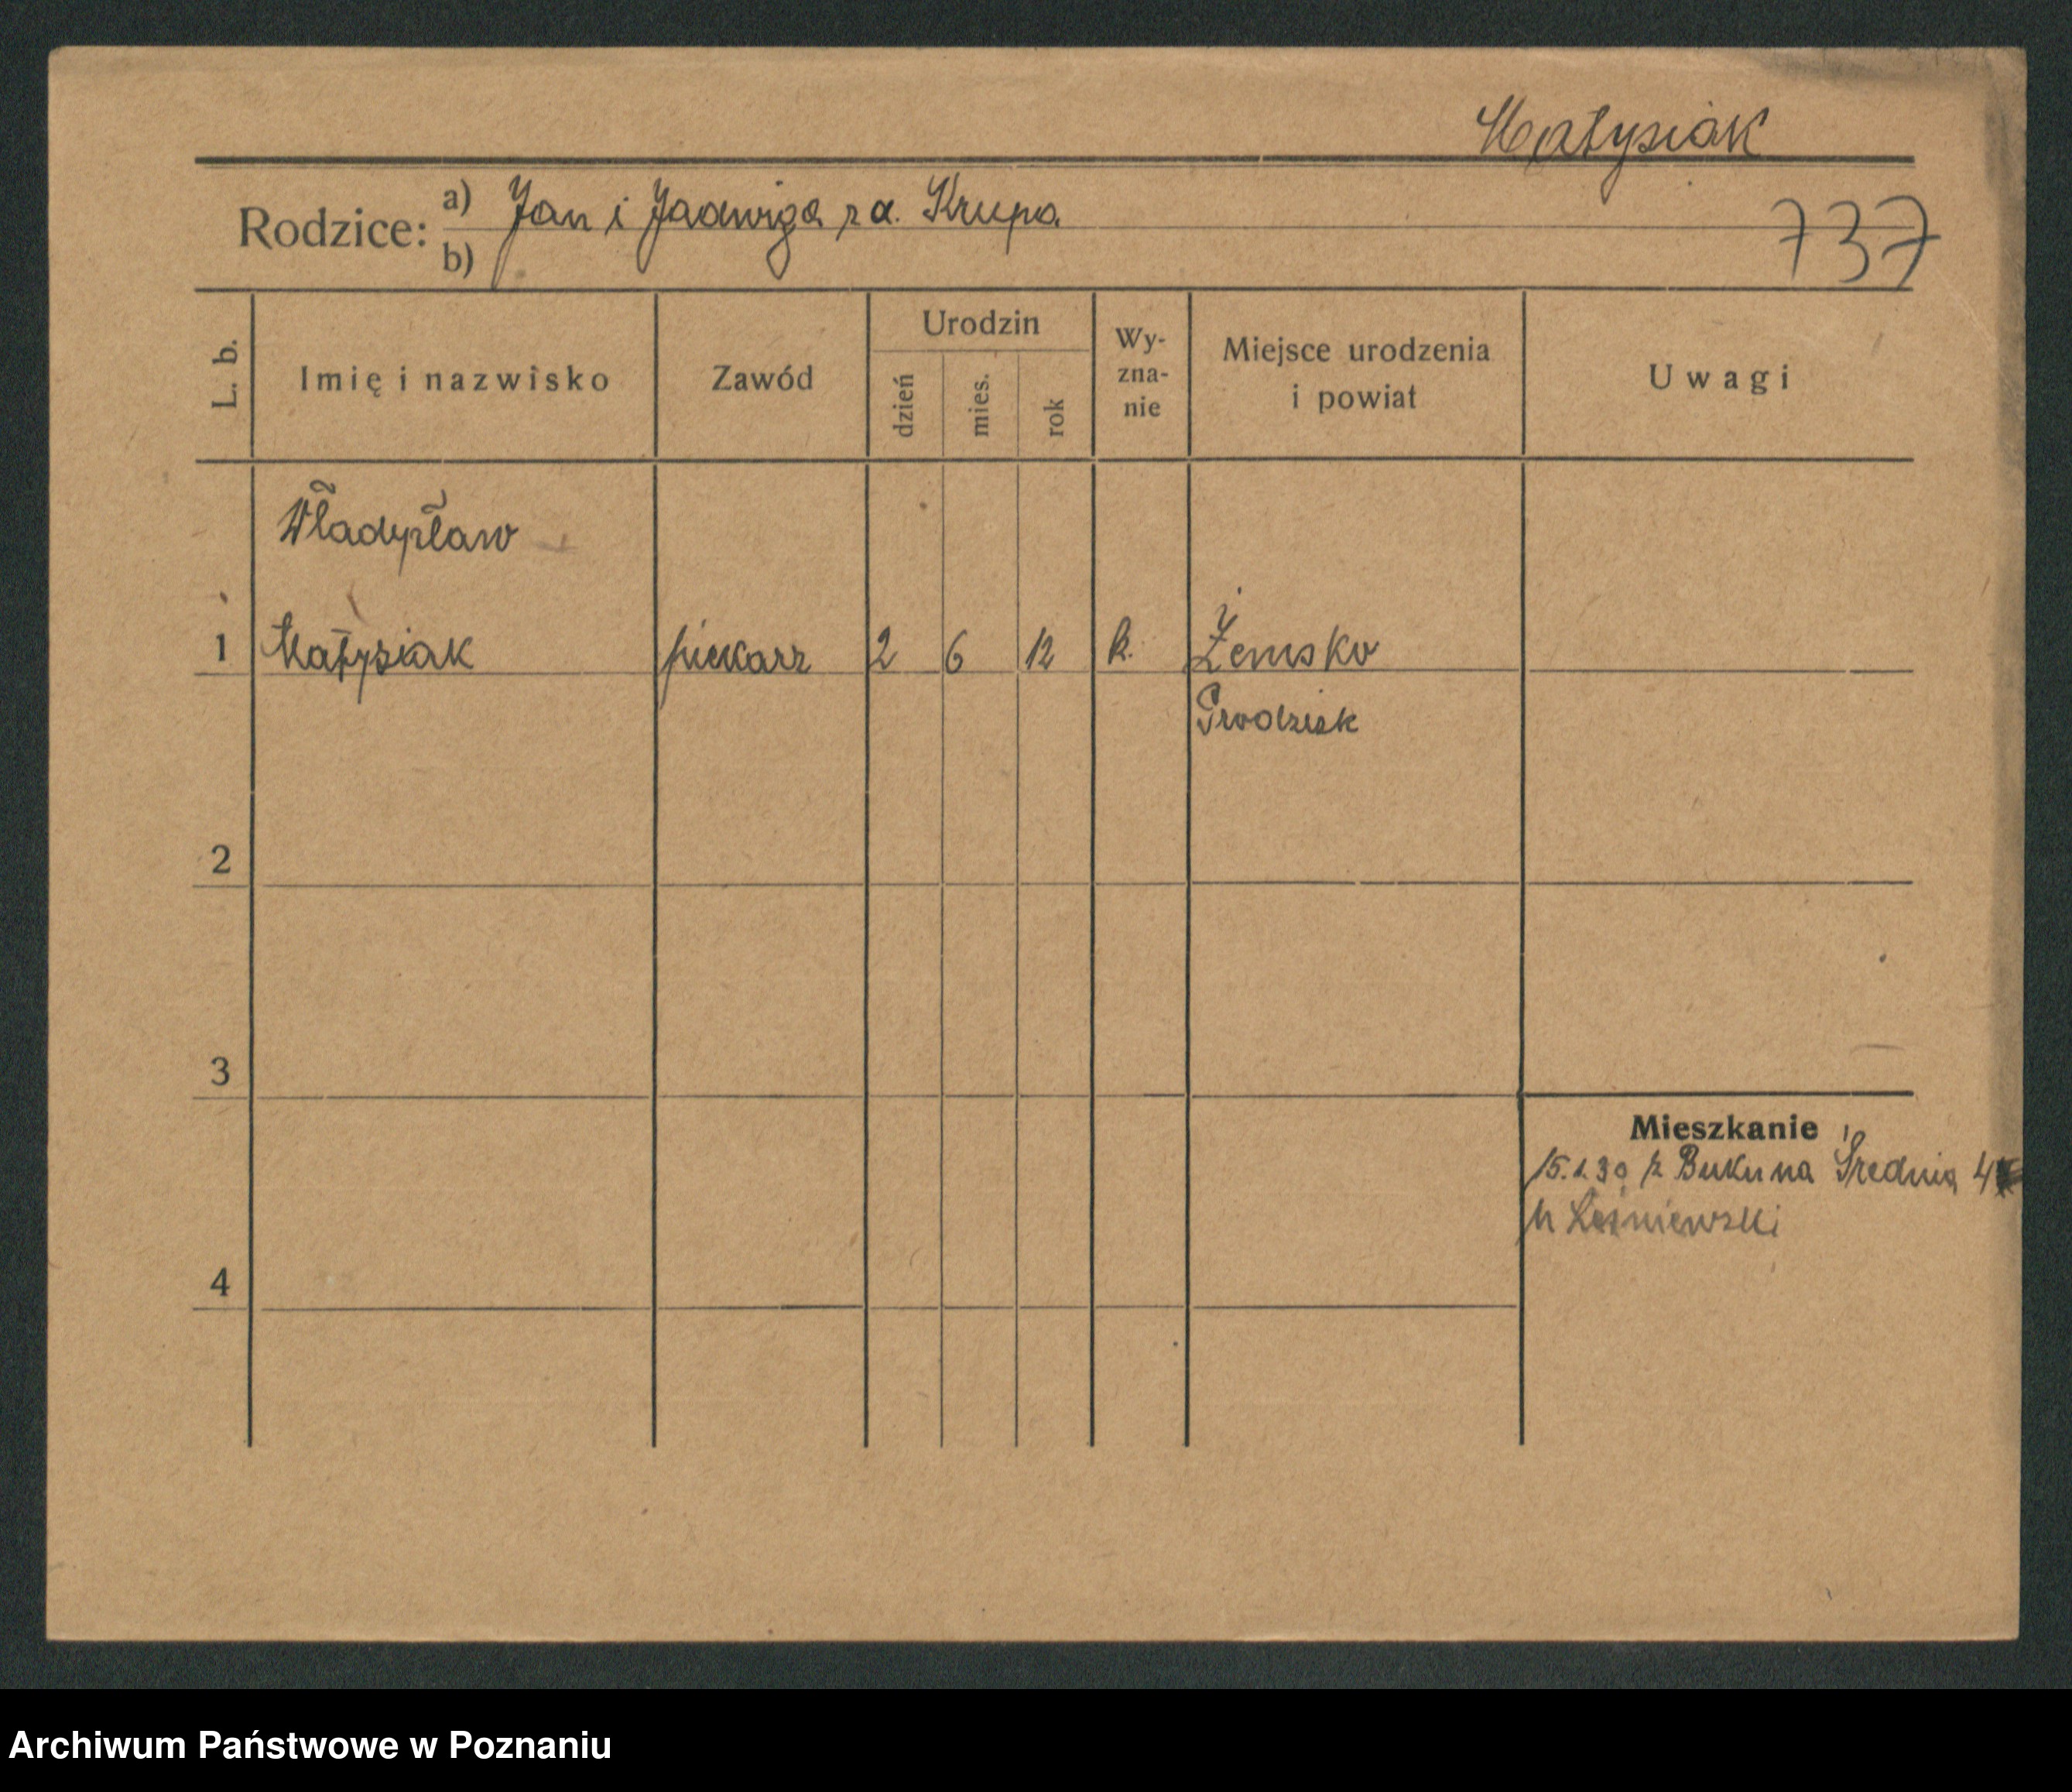 Matysiak
Rodzice: a) Jan i Jadwiga z d. Krupa
b)
737
L. b.
Imię i nazwisko
Zawód
Urodzin
dzień
mies.
rok
Wy-
zna-
nie
Miejsce urodzenia
i powiat
Uwagi
Władysław
1 Matysiak piekarz 2 6 12 k. Żemsko
Grodzisk
2
3
4
Mieszkanie
15.1.30 z Buku na Średnią
u Leśniewski
Archiwum Państwowe w Poznaniu